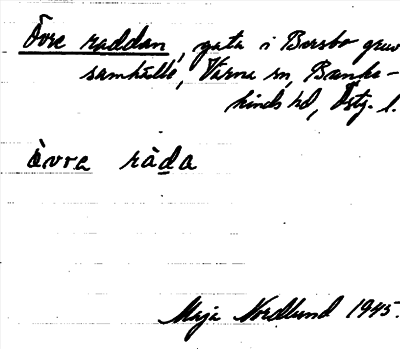 Övre raddan, gata i Bersbo gruv
samhälle, Värna sn, Banke-
kinds hd, Östg. l.
òvra ràda
Maja Nordlund 1945.